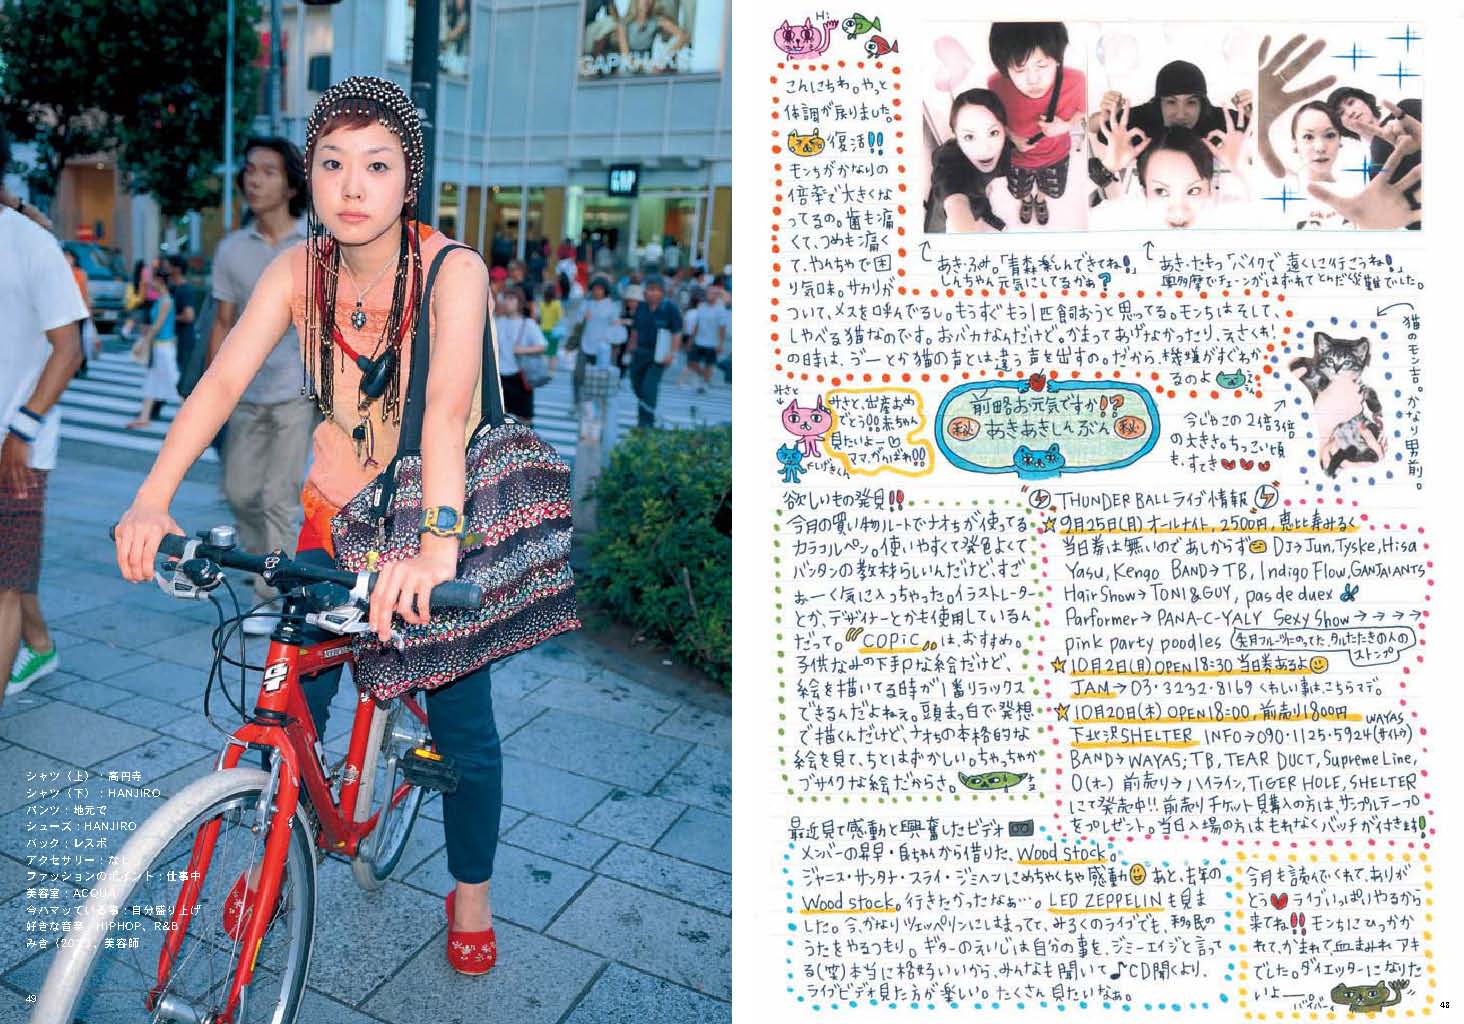 GAP KHAKIS
GAP
GT
シャツ（上）：高円寺
シャツ（下）：HANJIRO
パンツ：地元で
シューズ：HANJIRO
バック：レスポ
アクセサリー：なし
ファッションのポイント：仕事中
美容室：ACQUA
今ハマッている事：自分盛り上げ
好きな音楽：HIPHOP、R&B
みき（20才）、美容師
49
Hi
こんにちわ。やっと
体調が戻りました。
復活!!
モンちがかなりの
倍率で大きくな
ってるの。歯も痛
くて、つめもン痛く
て、やんちゃで困
り気味。サカリが
ついて、メスを呼んでるし。もうすぐもう1匹飼おうと思ってる。モンちはそして、
しゃべる猫なのです。おバカなんだけど。かまってあげなかったり、えさくれ!
の時は、うーとか猫の声とは、違う声を出すの。だから、機嫌がすぐわか
るのよ
あき・ふみ。「青森楽しんできてね!」
しんちゃん元気にしてるかぁ?
あき・たもつ「バイクで遠くに行こうね!
奥多摩でチェーンがはずれてとんだ災難でした。
猫のモン吉。かなり男前。
今じゃこの2倍3倍
の大きさ。ちっこい頃
も、すてき
みさと
みさと、出産おめ
でとう!!赤ちゃん
見たいよー♡
ママ、がんばれ!!
れいじくん
前略お元気ですか!?
秘 あきあきしんぶん 秘
欲しいもの発見!!
今月の買い物ルートでナオちが使ってる
カラコルペン。使いやすくて発色よくて
バンタンの教材らしいんだけど、すご
ぉーく気に入っちゃった。イラストレーター
とか、デザイナーとかも使用しているん
だって。"COPiC"は、おすすめ。
子供なみの下手Pな絵だけど、
絵を描いてる時が1番リラックス
できるんだよねぇ。頭まっ白で発想
で描くんだけど、ナオちの本格的な
絵を見て、ちとはずかしい。ちゃっちゃか
ブサイクな絵だからさ。
THUNDER BALL ライブ情報
☆9月25日(月) オールナイト, 2500円, 恵比寿みるく
当日券は無いのであしからず DJ→Jun, Tyske, Hisa
Yasu, Kengo BAND→TB, Indigo Flow, GANJA!ANTS
Hair Show→TONI&GUY, pas de deux
Parformer→PANA-C-YALY Sexy Show→→→→
pink party poodles (先月フルーツにのってた、タルたたきの人の
ストンプ)
☆10月2日(月) OPEN 18:30 当日券あるよ
JAM→03・3232・8169 くわしい事は、こちらマデ。
☆10月20日(木) OPEN 18:00, 前売り1800円
下北沢SHELTER INFO→090・1125・5924(サイトウ)
BAND→WAYAS, TB, TEAR DUCT, Supreme Line,
O(オー) 前売り→ハイライン, TIGER HOLE, SHELTER
にて発売中!! 前売りチケット購入の方は、サンプルテープ
をプレゼント。当日入場の方はもれなくバッチが付きます!
最近見て感動と興奮したビデオ
メンバーの昇早・良ちゃんから借りた、Wood stock。
ジャニス・サンタナ・スライ・ジミヘンにめちゃくちゃ感動 あと、去年の
Wood stock。行きたかったなぁ…。LED ZEPPELINも見ま
した。今、かなりツェッペリンにしまってて、みるくのライブでも、移民の
うたをやるつもり。ギターのえいじは自分の事を、ジミーエイジと言って
る(笑)本当に格好いいから、みんなも聞いて♪CD聞くより、
ライブビデオ見た方が楽しい。たくさん見たいなぁ。
今月も読んでくれて、ありが
とう♥ライブいっぱいやるから
来てね!!モンちにひっかか
れて、かまれて、血まみれアキ
でした。ダイエッターになりた
いよー。
バイバーイ
48